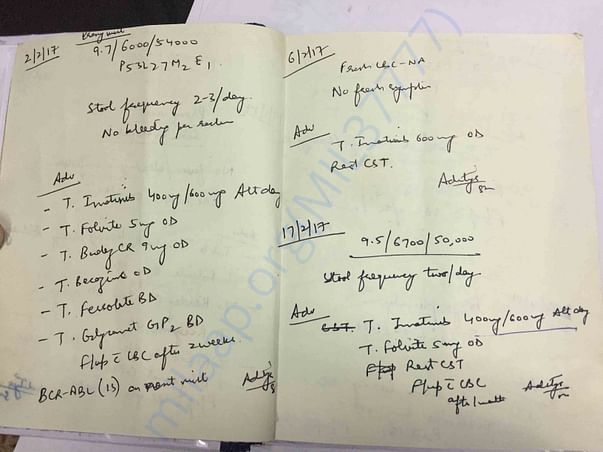 2/2/17
9.7/6000/54000
P53L27M2E1
Stool frequency 2-3/day.
No bleeding per rectum
Adv
- T. Imatinib 400mg/600mg Alt day
- T. Folvite 5mg OD
- T. Budez CR 9mg OD
- T. Becozinc OD
- T. Fersolate BD
- T. Glycomet GP2 BD
F/up c̄ CBC after 2 weeks.
BCR-ABL (IS) on next visit
6/2/17
Fresh CBC-NA
No fresh symptom
Adv
T. Imatinib 600mg OD
Rest CST.
17/2/17
9.5/6700/50,000
Stool frequency two/day.
Adv
T. Imatinib 400mg/600mg Alt day
T. Folvite 5mg OD
Rest CST
F/up c̄ CBC
after 1 week
milaap.org/Mili37777)